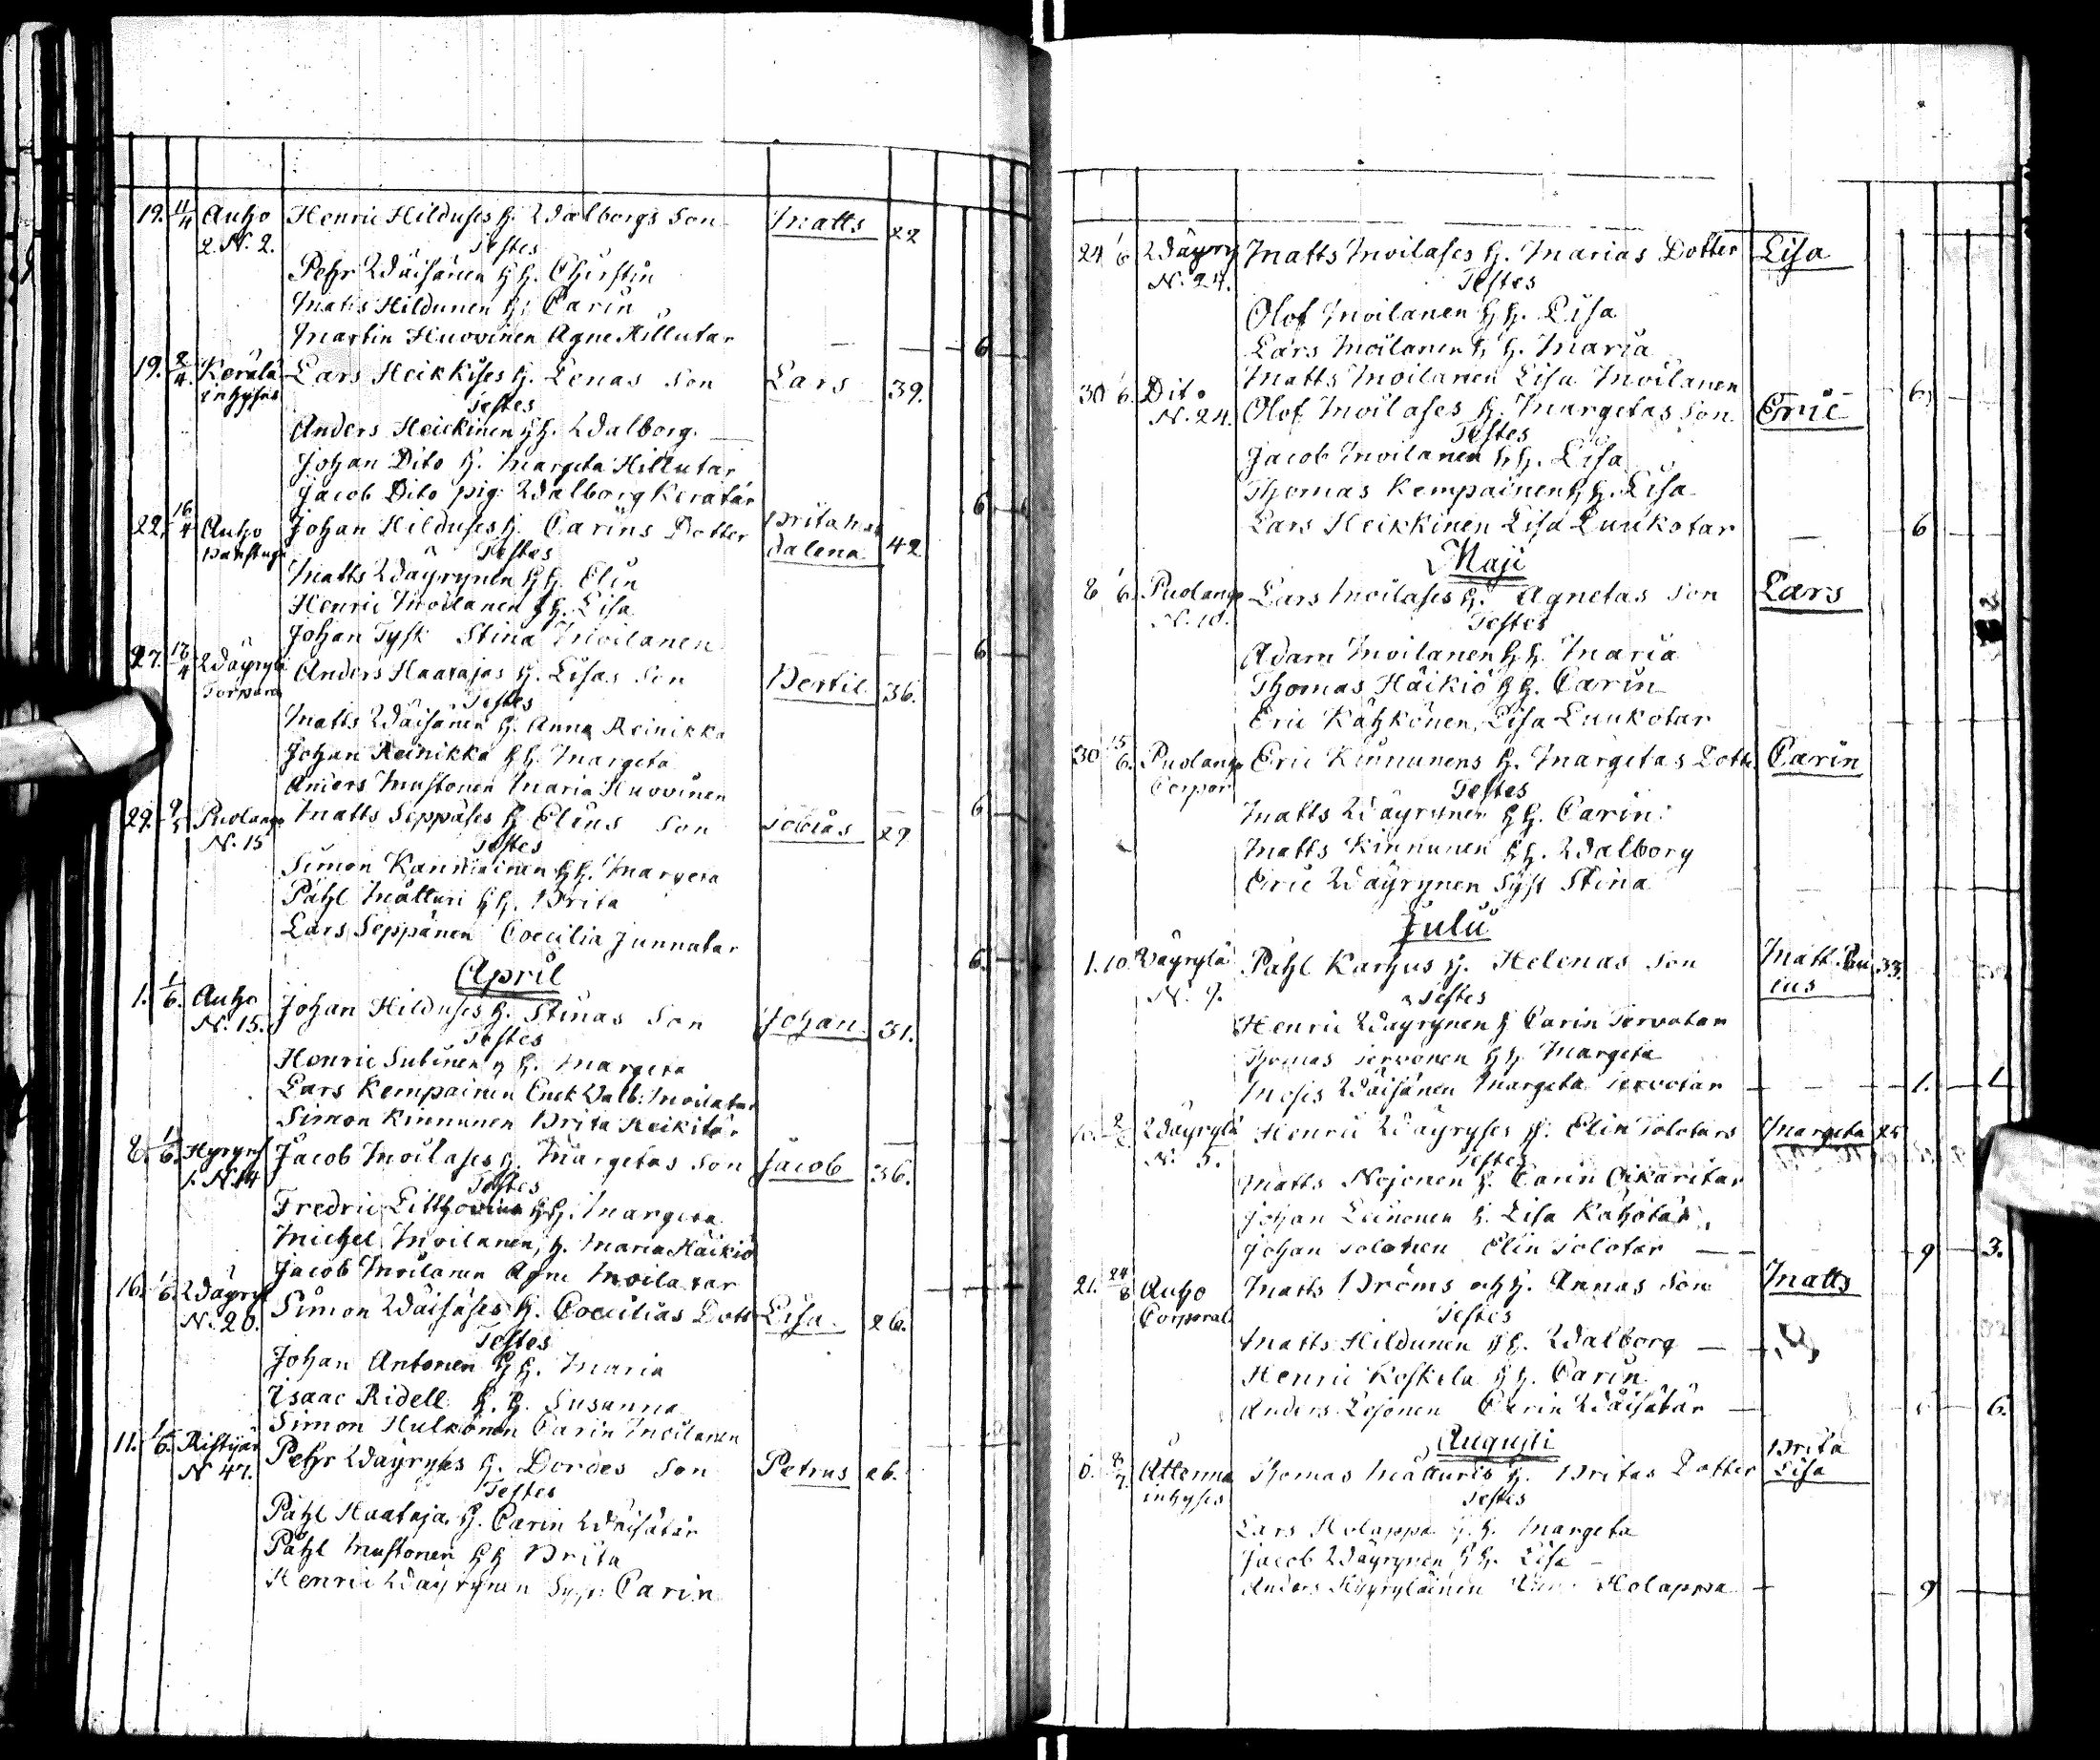 19. 11/4 Auho Henric Hilduses h. Walborgs Son Matts 22
2. N. 2. Testes
Pehr Wäisänen h h. Chirstin
Matts Hildunen h. Carin
Martin Huovinen Agne Hillutar — — 6
19. 2/4 Kerälä Lars Heikkises h. Lenas Son Lars 39.
inhyses Testes
Anders Heickinen h h. Walborg.
Johan Dito h. Margeta Hillutar
Jacob Dito pig. Walborg Kerätär 6
22. 16/4 Auho Johan Hilduses h. Carins Dotter Brita Mag
dalena 42
Testes
Matts Wäyrynen h h. Elin
Henric Moilanen h h. Lisa
Johan Tysk Stina Moilanen 6
27. 18/4 Wäyrylä Anders Haatajas h. Lisas Son Bertil 36.
Torpare Testes
Matts Wäisänen h. Anna Reinikka
Johan Reinikka h h. Margeta
Anders Mustonen Maria Huovinen 6
29. 9/5 Puolango Matts Seppäses h. Elins Son Tobias 29
N. 15 Testes
Simon Kanniainen h h. Margeta
Påhl Mätturi h h. Brita
Lars Seppänen Coecilia Junnatar 6.
April
1. 1/6. Auho Johan Hilduses h. Stinas Son Johan 31.
N. 15. Testes
Henric Sutinen h h. Margeta
Lars Kempainen Enck Valb: Moilatar
Simon Kinnunen Brita Heikitär
8. 1/6. Hyryns Jacob Moilases h. Margetas Son Jacob 36.
1. N. 14 Testes
Fredric Litthovius h h. Margeta
Michel Moilanen, h. Maria Häikiö
Jacob Moilanen Agne Moilatar
16. 1/6. Wäyryl Simon Wäisäses h. Coecilias Dott Lisa. 26.
N. 20. Testes
Johan Antonen h h. Maria
Isaac Ridell h. h. Susanna
Simon Hulkonen Carin Moilanen
11. 1/6. Ristijär Pehr Wäyryses h. Bordes Son Petrus 26.
N 47. Testes
Påhl Haataja h. Carin Wäisätär
Påhl Mustonen h h Brita
Henric Wäyrynen Syst: Carin
24 1/6 Wäyry Matts Moilases h. Marias Dotter Lisa
N. 24. Testes
Olof Moilanen h h. Lisa
Lars Moilanen h h. Maria
Matts Moilanen Lisa Moilanen 6
30 1/6. Dito Olof Moilases h. Margetas Son Eric
N. 24. Testes
Jacob Moilanen h h. Lisa
Thomas Kempainen h h. Lisa
Lars Heikkinen Lisa Luukotar — 6
Maji
8 1/6. Puolango Lars Moilases h. Agnetas Son Lars
N. 10. Testes
Adam Moilanen h h. Maria
Thomas Häikiö h h. Carin
Eric Kähkönen, Lisa Luukotar
30 15/6. Puolango Eric Kinnunens h. Margetas Dotte Carin
Corpor Testes
Matts Wäyrynen h h. Carin
Matts Kinnunen h h. Walborg
Eric Wäyrynen Syst Stina
Julii
1. 10 Wäyrylä Påhl Karhus h. Helenas Son Matt. Pau 33.
lus
N. 9. Testes
Henric Wäyrynen h Carin Tervotar
Thomas Tervonen h h Margeta
Moses Wäisänen Margeta Tervotar — 1. 1
Wäyrylä Henric Wäyryses h. Elin Tolotars Margeta 25
N. 5. Testes
Matts Nojonen h. Carin Oikaritar
Johan Leinonen h. Lisa Kähötär
Johan Tolonen Elin Tolotar — 9 3.
21. 24/8 Auho Matts Bröms och h. Annas Son Matts
Corporal Testes
Matts Hildunen h h. Walborg —
Henric Koskela h h. Carin
Anders Leinonen Carin Wäisätär — 6.
Augusti
8/9 Attenma Thomas Mätturis h. Britas Dotter Brita
Lisa
inhyses Testes
Lars Holappa h. h. Margeta
Jacob Wäyrynen h h. Lisa —
Anders Hyryläinen Holappa — 9